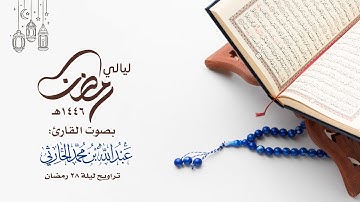 ليالي
رمضان
١٤٤٦هـ
بصوت القارئ:
عبدالله بن محمد الحارثي
تراويح ليلة ٢٨ رمضان